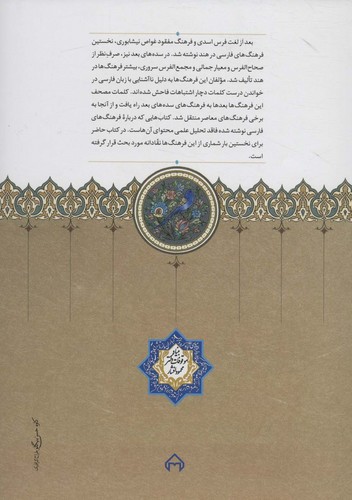 بعد از لغت فرس اسدی و فرهنگ مفقود غواص نیشابوری، نخستین
فرهنگ‌های فارسی در هند نوشته شد. در سده‌های بعد نیز، صرفِ نظر از
صحاح‌الفرس و معیار جمالی و مجمع‌الفرس سروری، بیشتر فرهنگ‌ها در
هند تألیف شد. مؤلفان این فرهنگ‌ها به دلیل ناآشنایی با زبان فارسی در
خواندن درست کلمات دچار اشتباهات فاحش شده‌اند. کلمات مصحف
این فرهنگ‌ها بعدها به فرهنگ‌های سده‌های بعد راه یافت و از آنجا به
برخی فرهنگ‌های معاصر منتقل شد. کتاب‌هایی که دربارهٔ فرهنگ‌های
فارسی نوشته شده فاقد تحلیل علمی محتوای آن‌هاست. در کتاب حاضر
برای نخستین بار شماری از این فرهنگ‌ها نقّادانه مورد بحث قرار گرفته
است.
بنیاد
موقوفات دکتر
محمود افشار